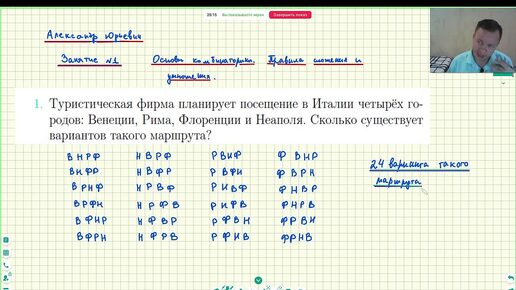 29:15 Вы показываете экран Завершить показ
Александр Юрьевич
Занятие №1 Основы комбинаторики. Правила сложения и
умножения.
1. Туристическая фирма планирует посещение в Италии четырёх го-
родов: Венеции, Рима, Флоренции и Неаполя. Сколько существует
вариантов такого маршрута?
ВНРФ НВРФ РВНФ ФВНР
ВНФР НВФР РВФН ФВРН
ВРНФ НРВФ РНВФ ФНВР
ВРФН НРФВ РНФВ ФНРВ
ВФНР НФВР РФВН ФРВН
ВФРН НФРВ РФНВ ФРНВ
24 варианта такого
маршрута